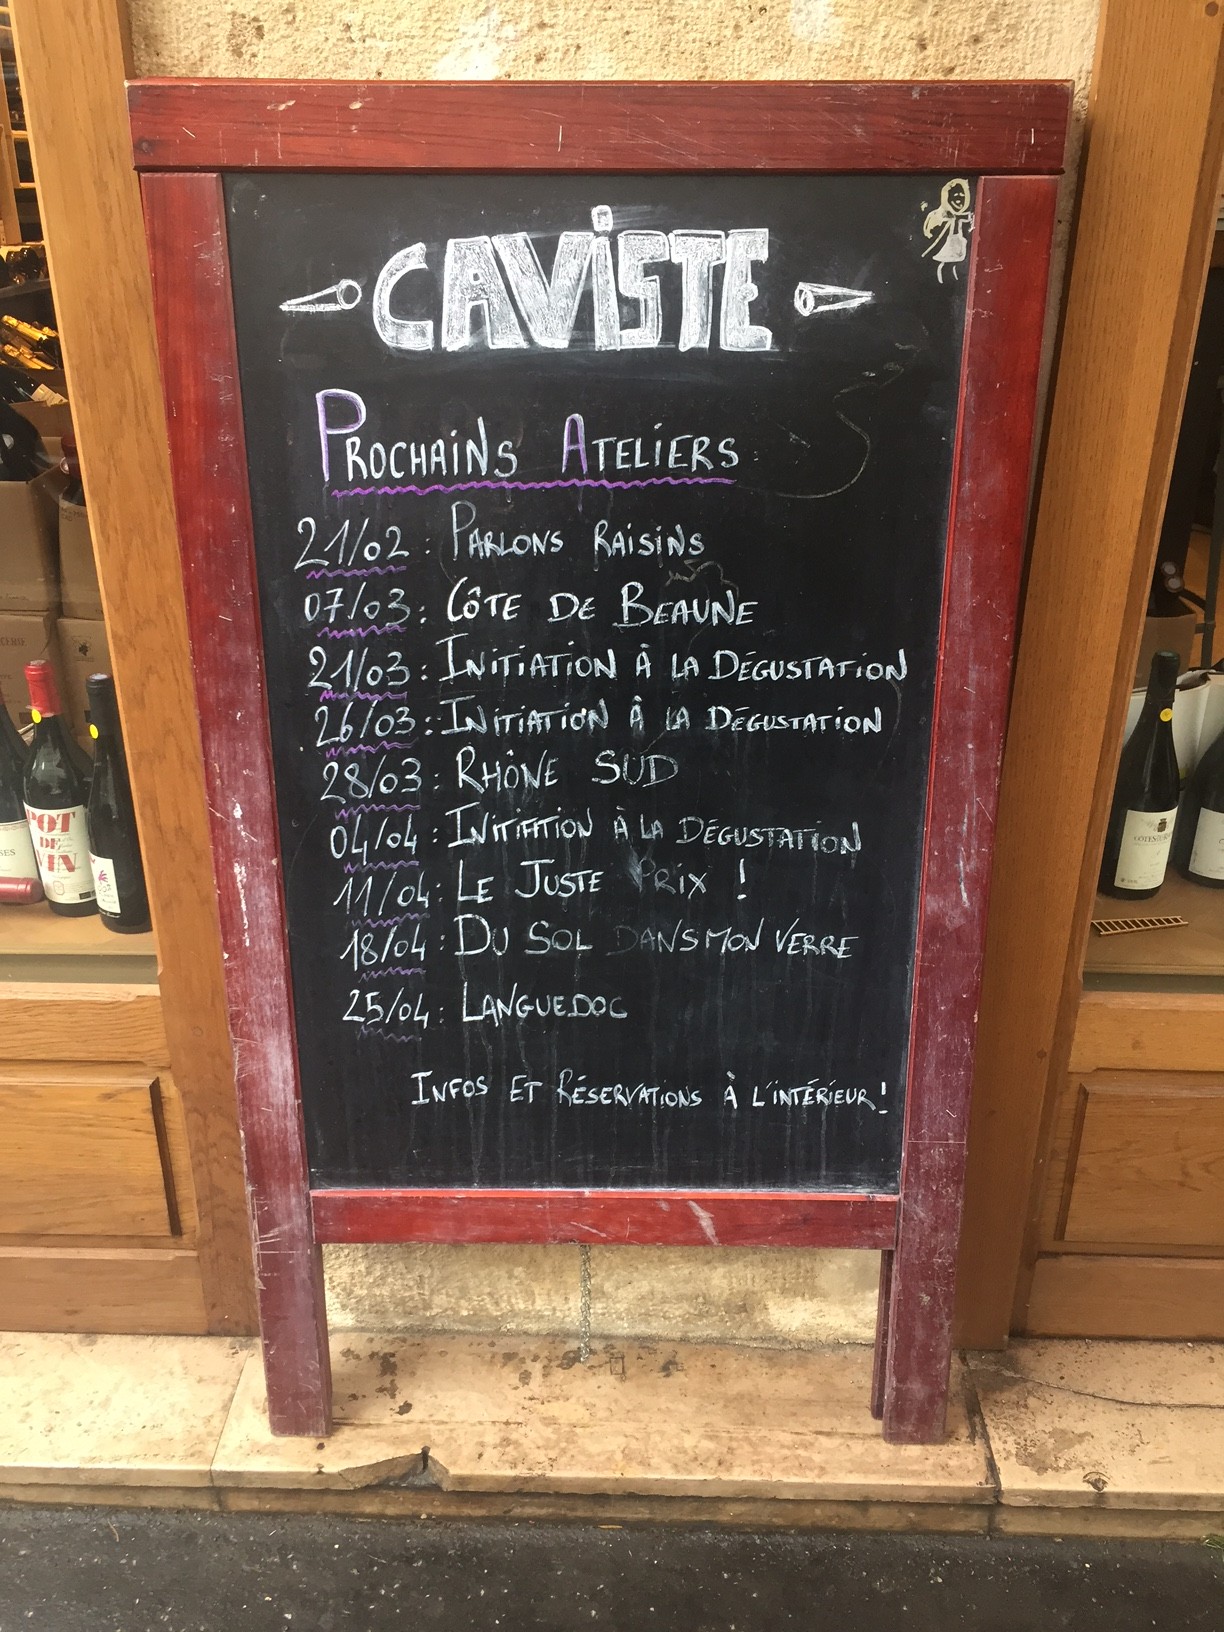 CAViSTE
PROCHAiNS ATELiERS
21/02 : PARLONS RAiSiNS
07/03 : CÔTE DE BEAUNE
21/03 : INiTiATION À LA DÉGUSTATiON
26/03 : INiTiATiON À LA DÉGUSTATION
28/03 : RHÔNE SUD
04/04 : INiTiATiON À LA DÉGUSTATiON
11/04 : LE JUSTE PRiX !
18/04 : DU SOL DANS MON VERRE
25/04 : LANGUEDOC
INFOS ET RÉSERVATIONS À L'iNTÉRiEUR !
POT
DE
VIN